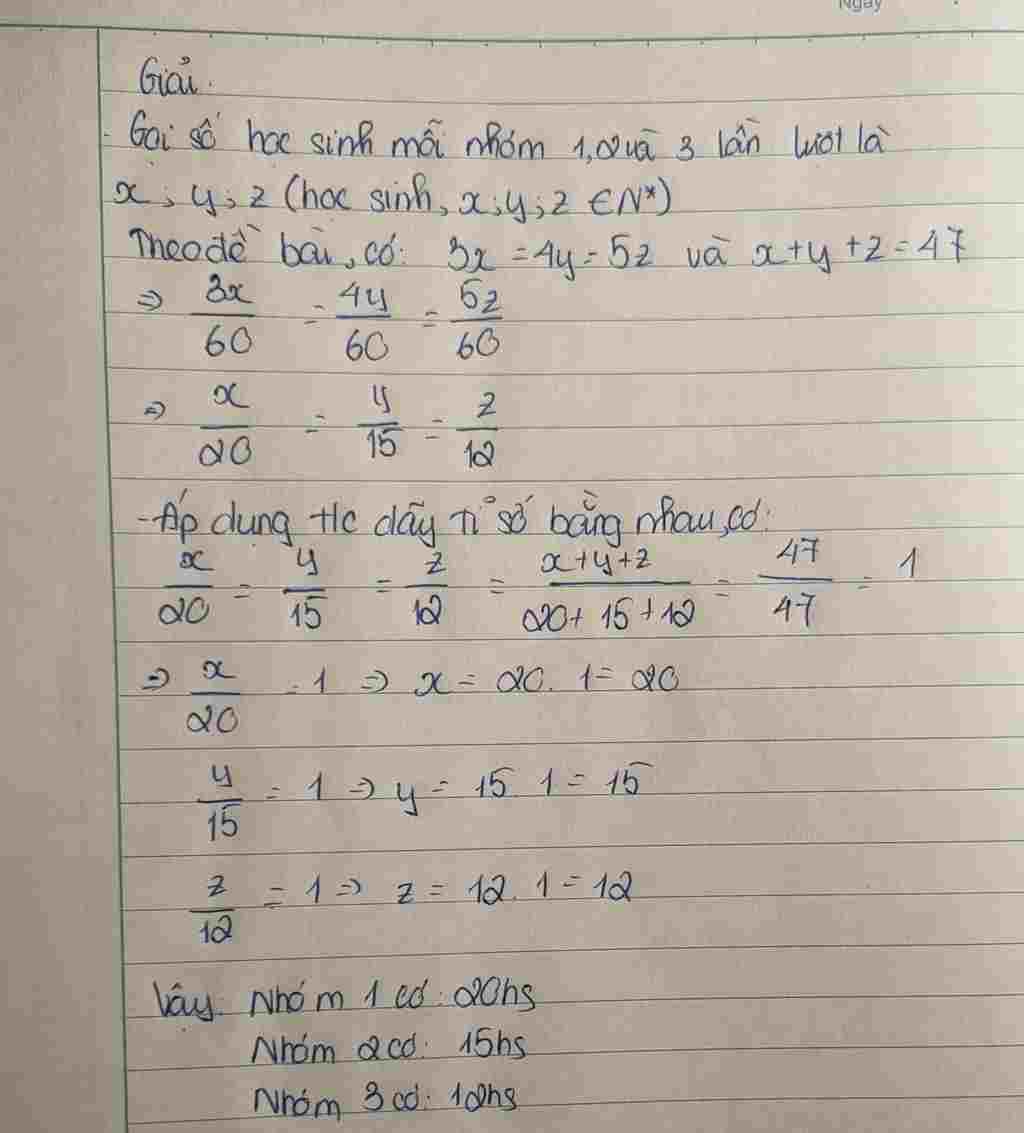 Ngày
Giải.
- Gọi số học sinh mỗi nhóm 1, 2 và 3 lần lượt là
x; y; z (học sinh, x; y; z ∈ N*)
Theo đề bài, có: 3x = 4y = 5z và x + y + z = 47
⇒ 3x/60 = 4y/60 = 5z/60
⇒ x/20 = y/15 = z/12
- Áp dụng t/c dãy tỉ số bằng nhau, có:
x/20 = y/15 = z/12 = x+y+z/20+15+12 = 47/47 = 1
⇒ x/20 = 1 ⇒ x = 20. 1 = 20
y/15 = 1 ⇒ y = 15 1 = 15
z/12 = 1 ⇒ z = 12. 1 = 12
Vậy. Nhóm 1 có: 20hs
Nhóm 2 có: 15hs
Nhóm 3 có: 12hs